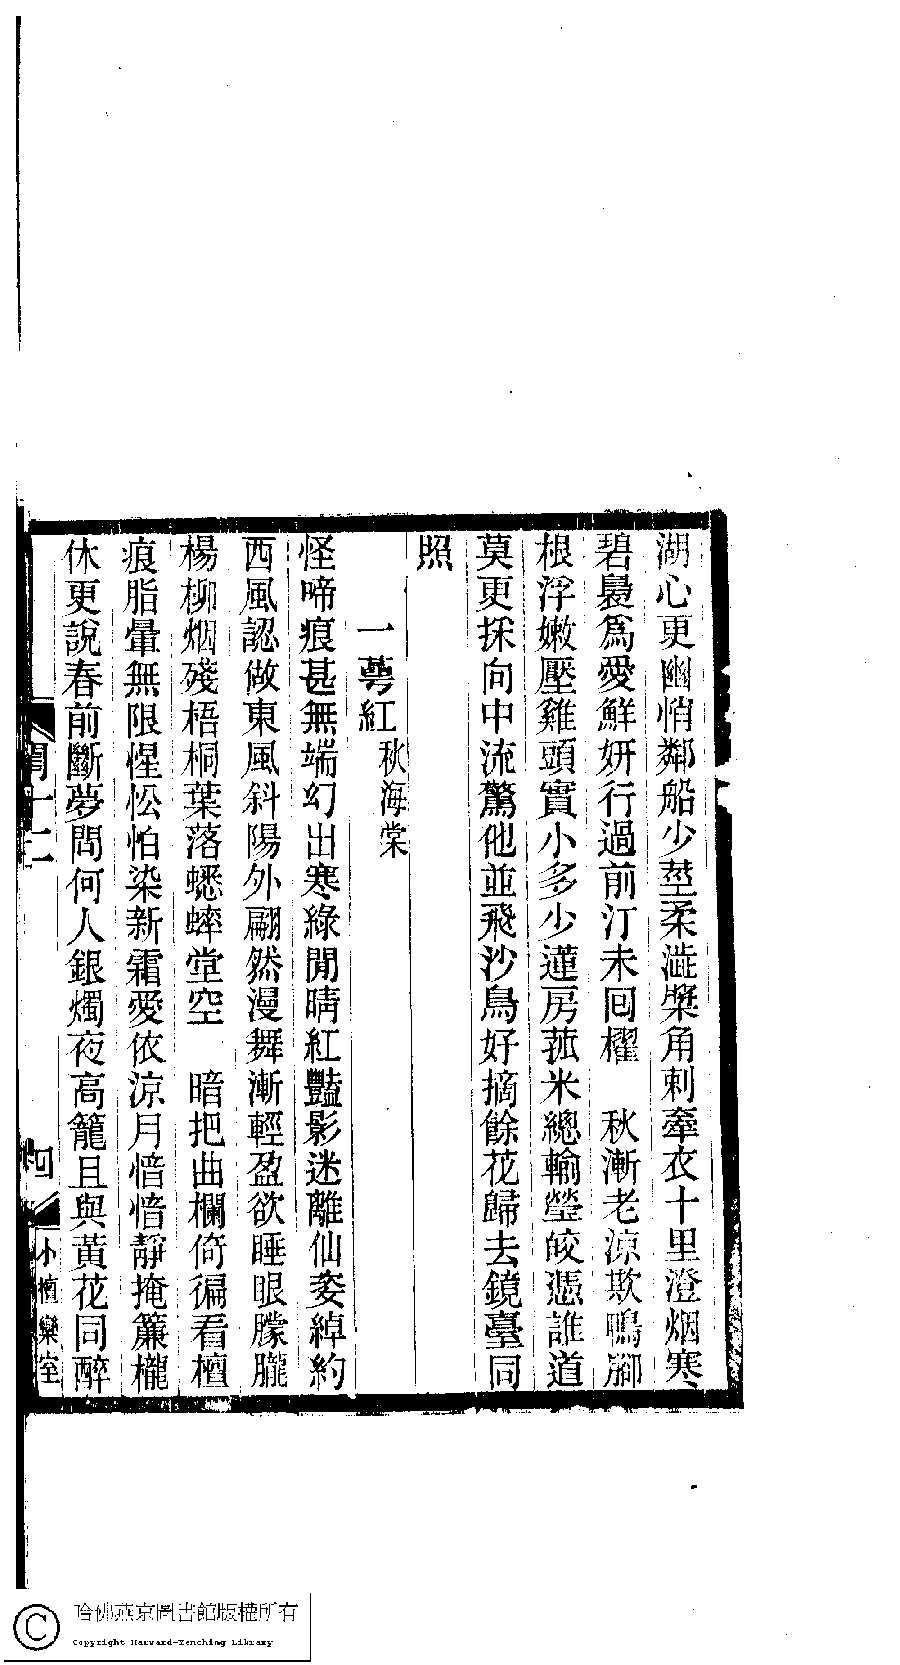 湖心更幽悄鄰船少莖柔澁槳角刺牽衣十里澄烟寒
碧㬉爲愛鮮妍行過前汀未回櫂　秋漸老涼欺鴨腳
根浮嫩壓雞頭實小多少蓮房菰米總輸瑩皎憑誰道
莫更採向中流驚他並飛沙鳥好摘餘花歸去鏡臺同
照
一萼紅秋海棠
怪啼痕甚無端幻出寒綠閒晴紅豔影迷離仙姿綽約
西風認做東風斜陽外翩然漫舞漸輕盈欲睡眼朦朧
楊柳烟殘梧桐葉落蟋蟀堂空　暗把曲欄倚徧看檀
痕脂暈無限惺忪怕染新霜愛依涼月愔愔靜掩簾櫳
休更說春前斷夢問何人銀燭夜高籠且與黃花同醉
閨十二
四
小檀欒室
哈佛燕京圖書館版權所有
Copyright Harvard-Yenching Library